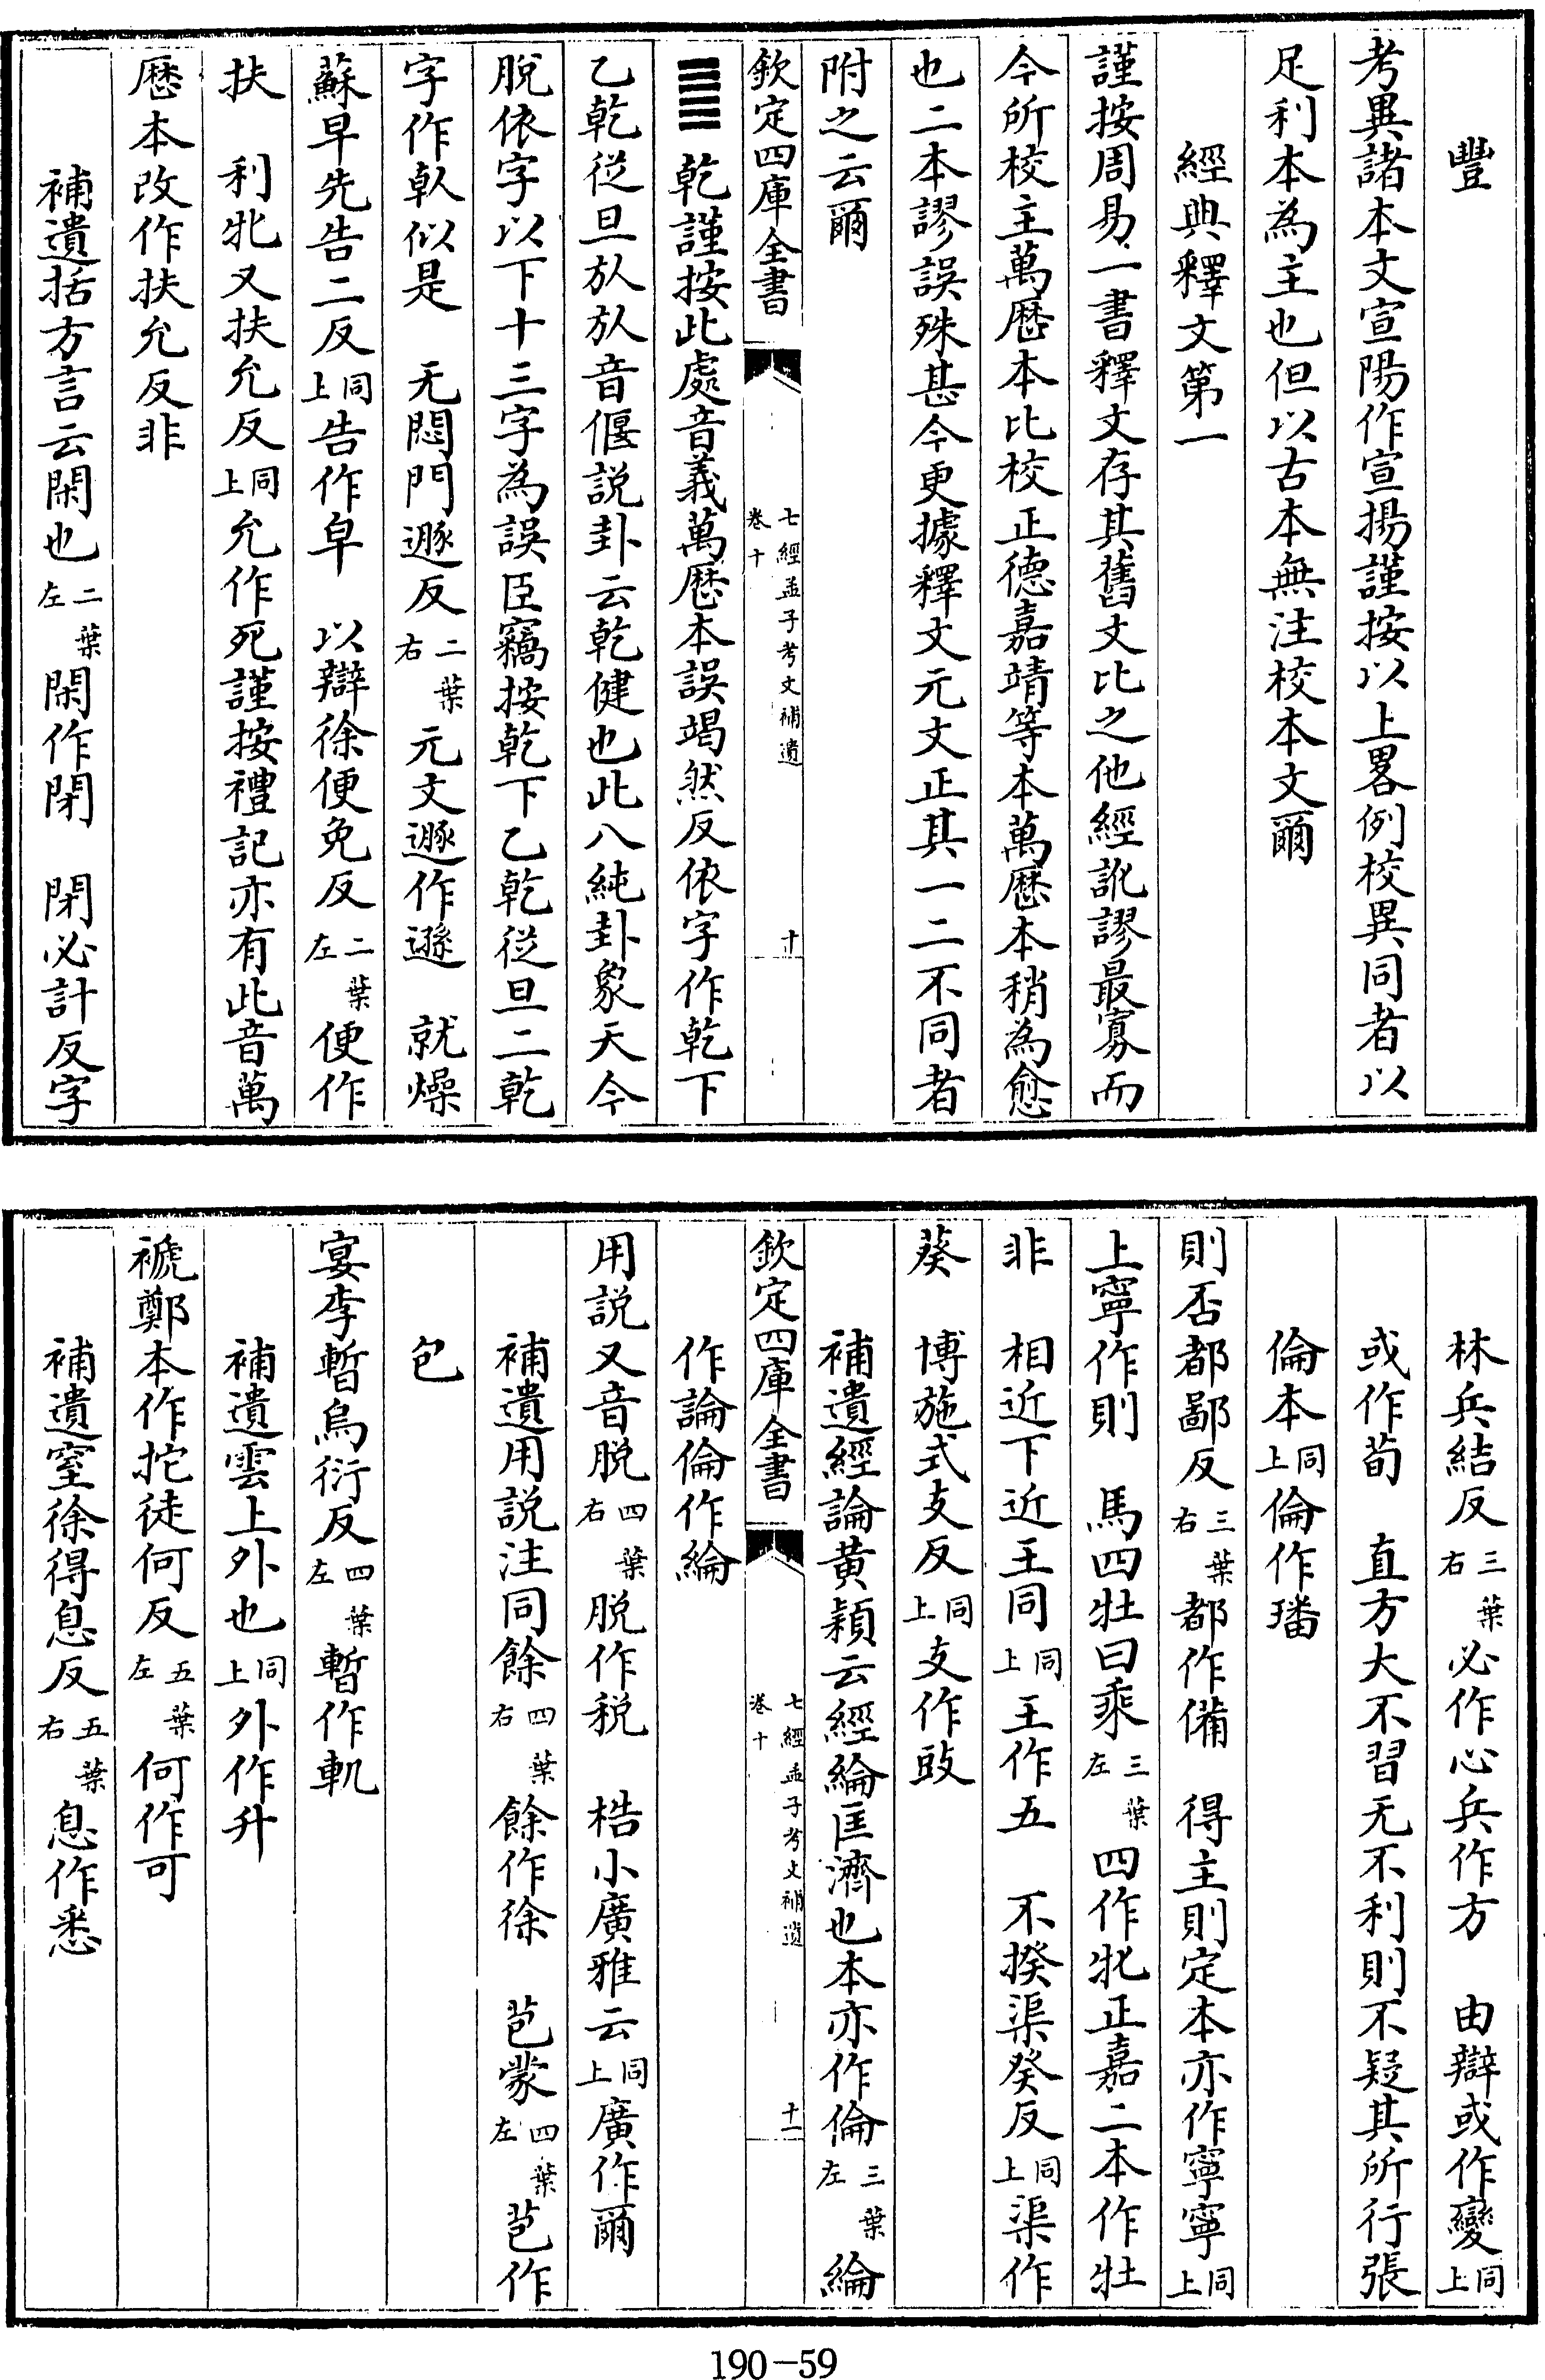 豐
考異諸本文宣陽作宣揚謹按以上畧例校異同者以
足利本為主也但以古本無注校本文爾
經典釋文第一
謹按周易一書釋文存其舊文比之他經訛謬最寡而
今所校主萬歴本比校正德嘉靖等本萬歴本稍為愈
也二本謬誤殊甚今更據釋文元文正其一二不同者
附之云爾
欽定四庫全書
七經孟子考文補遺
卷十
十
䷀乾謹按此處音義萬歴本誤竭然反依字作乾下
乙乾從旦㫃㫃音偃説卦云乾健也此八純卦象天今
脫依字以下十三字為誤臣竊按乾下乙乾從旦二乾
字作倝似是 无悶門遯反二葉右元文遯作遜 就燥
蘇早先告二反同上告作皁 以辯徐便免反二葉左便作
扶 利牝又扶允反同上允作死謹按禮記亦有此音萬
歴本改作扶允反非
補遺括方言云閑也二葉左閑作閉 閉必計反字
林兵結反三葉右必作心兵作方 由辯或作變同上
或作荀 直方大不習无不利則不疑其所行張
倫本同上倫作璠
則否都鄙反三葉右都作備 得主則定本亦作寧寧同上
上寧作則 馬四牡曰乘三葉左四作牝正嘉二本作牡
非 相近下近王同同上王作五 不揆渠癸反同上渠作
葵 博施式支反同上支作豉
補遺經論黄穎云經綸匡濟也本亦作倫三葉左綸
作論倫作綸
欽定四庫全書
七經孟子考文補遺
卷十
十一
用説又音脱四葉右脱作税 梏小廣雅云同上廣作爾
補遺用説注同餘四葉右餘作徐 苞蒙四葉左苞作
包
宴李暫烏衍反四葉左暫作軌
補遺雲上外也同上外作升
褫鄭本作拕徒何反五葉左何作可
補遺窒徐得息反五葉右息作悉
190-59